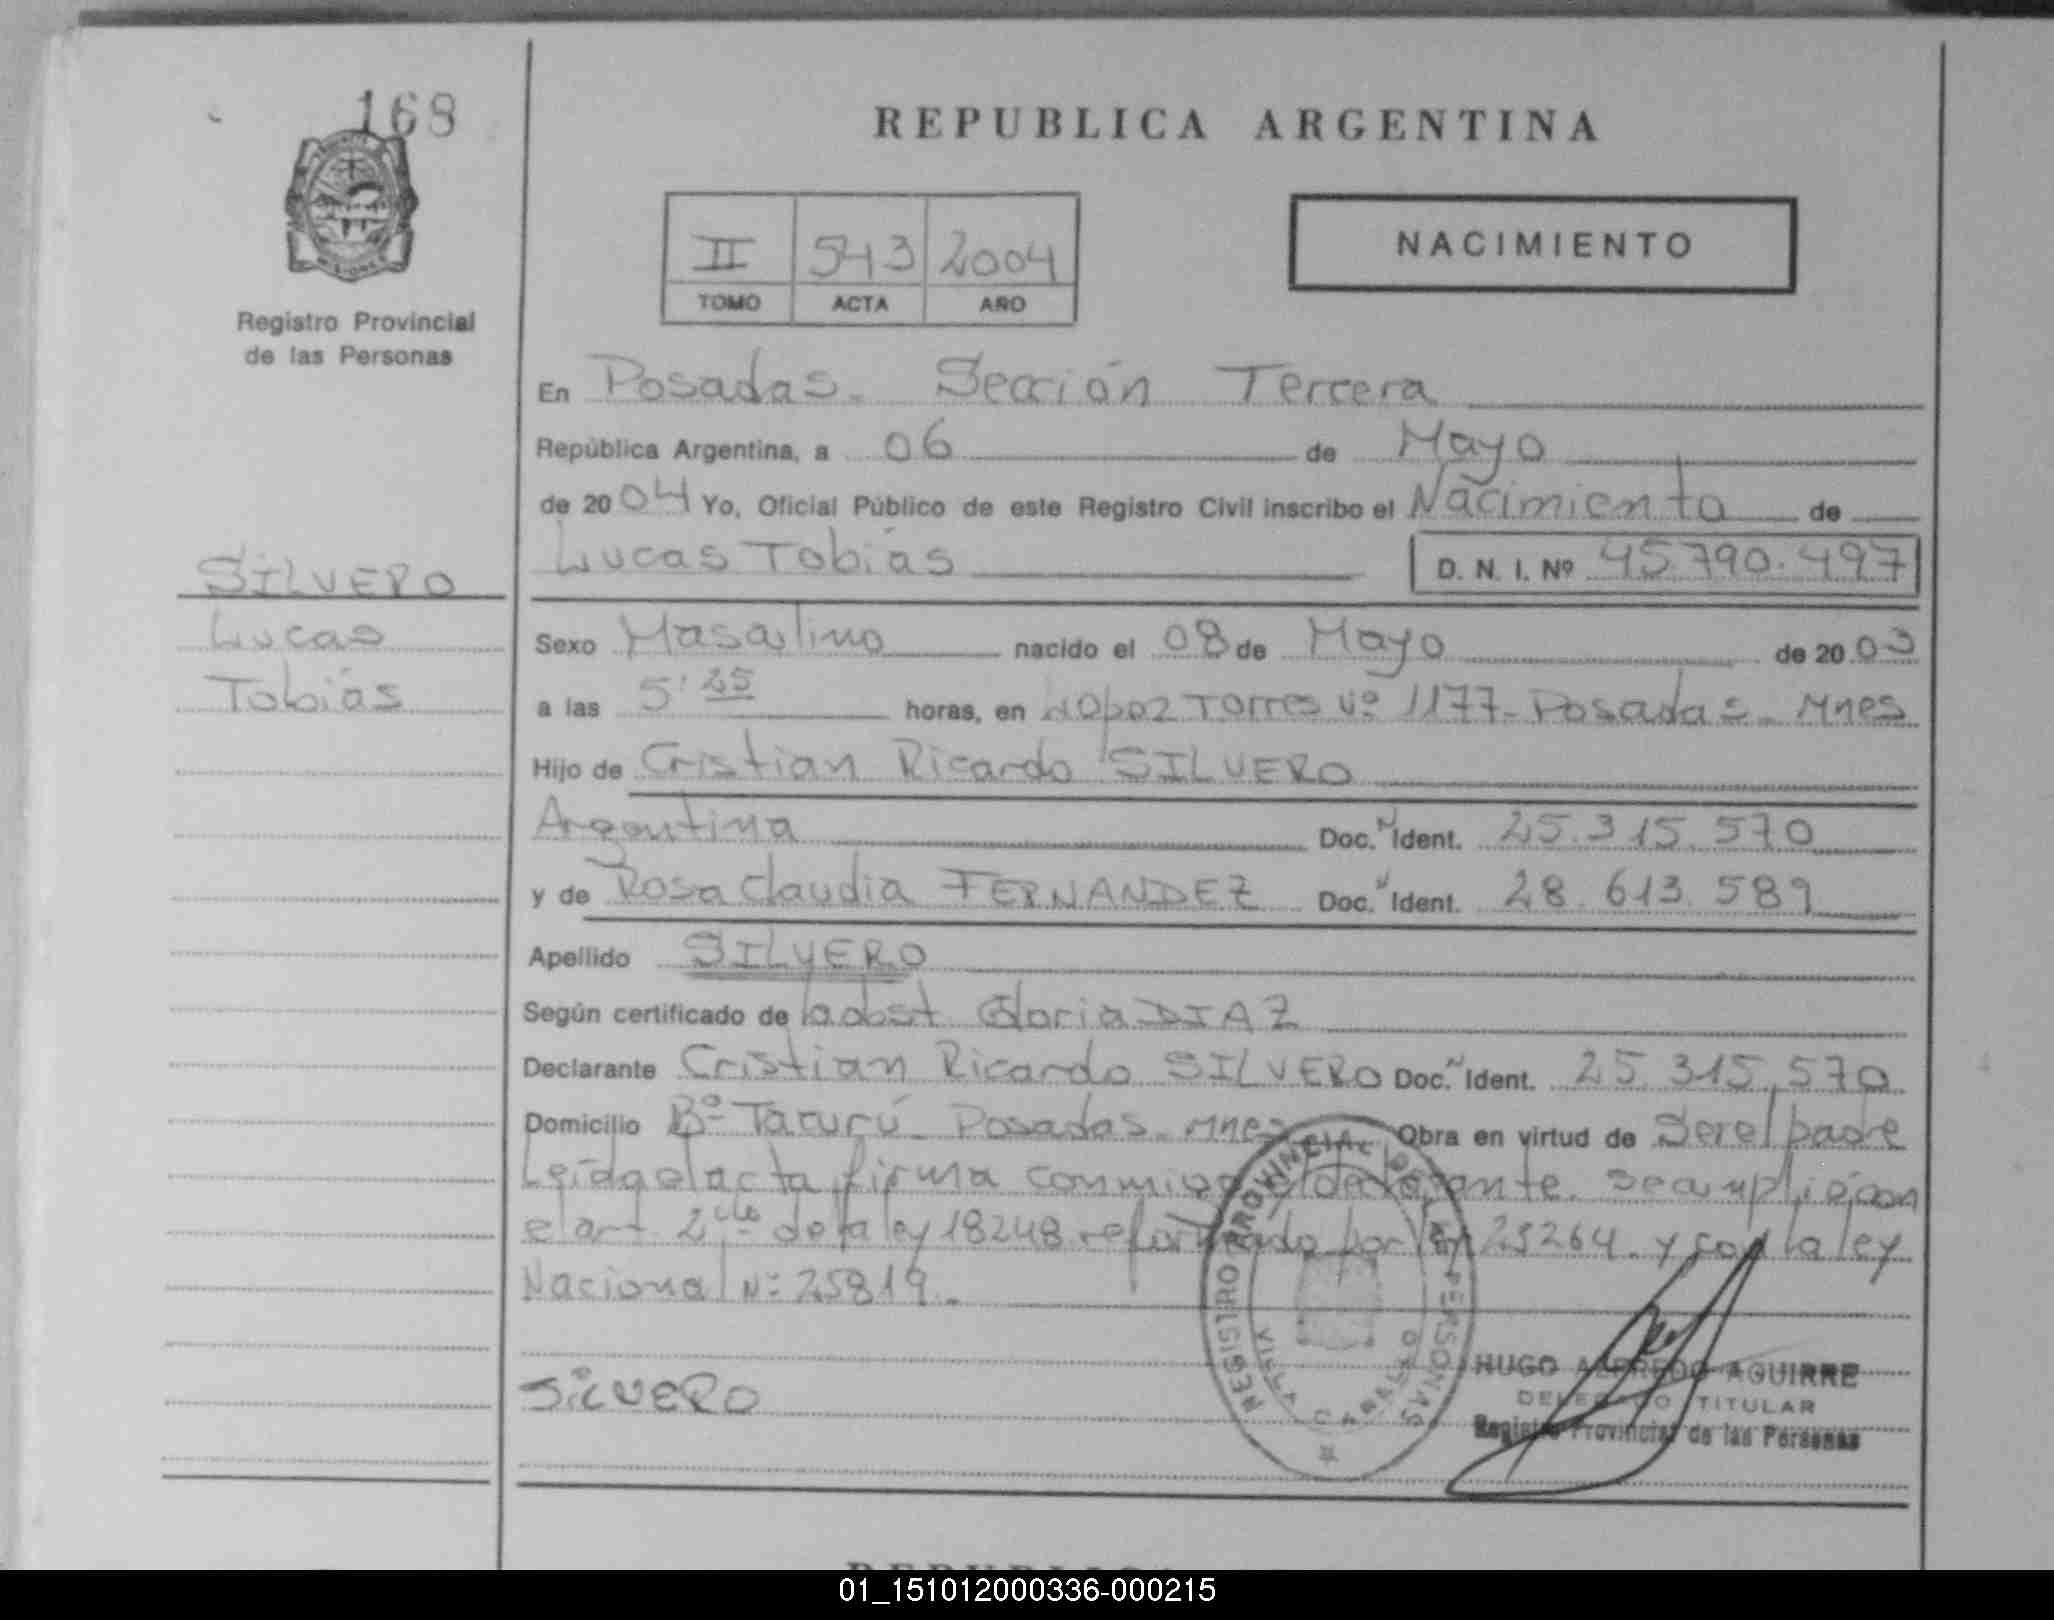 168
REPUBLICA ARGENTINA
MISIONES
Registro Provincial
de las Personas
II 543 2004
TOMO ACTA AÑO
NACIMIENTO
En Posadas. Sección Tercera
República Argentina, a 06 de Mayo
de 2004 Yo, Oficial Público de este Registro Civil inscribo el Nacimiento de
Lucas Tobías D. N. I. Nº 45.790.497
SILVERO
Lucas
Tobías
Sexo Masculino nacido el 08 de Mayo de 2003
a las 5'25 horas, en Lopez Torres Nº 1177- Posadas - Mnes
Hijo de Cristian Ricardo SILVERO
Argentina Doc. N Ident. 25.315.570
y de Rosa Claudia FERNANDEZ Doc. N Ident. 28.613.589
Apellido SILVERO
Según certificado de la obst Gloria DIAZ
Declarante Cristian Ricardo SILVERO Doc. N Ident. 25.315.570
Domicilio Bº Tacurú - Posadas - Mnes Obra en virtud de Ser el padre
Leída el acta firma conmigo el declarante. Se cumplió con
el art. 2 de la ley 18248 reformado por ley 23264 y con la ley
Nacional Nº 25819.-
SILVERO
REGISTRO PROVINCIAL DE LAS PERSONAS
VILLA CABELLO
HUGO ALFREDO AGUIRRE
DELEGADO TITULAR
Registro Provincial de las Personas
REPUBLICA
01_151012000336-000215